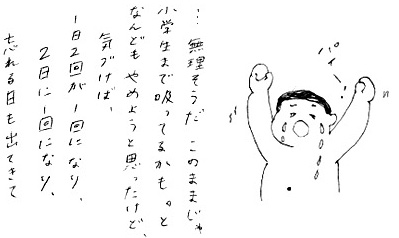 パイー！
… 無理そうだ このままじゃ
小学生まで吸ってるかも。と
なんどもやめようと思ったけど、
気づけば、
1日2回が1回になり、
2日に1回になり、
忘れる日も出てきて